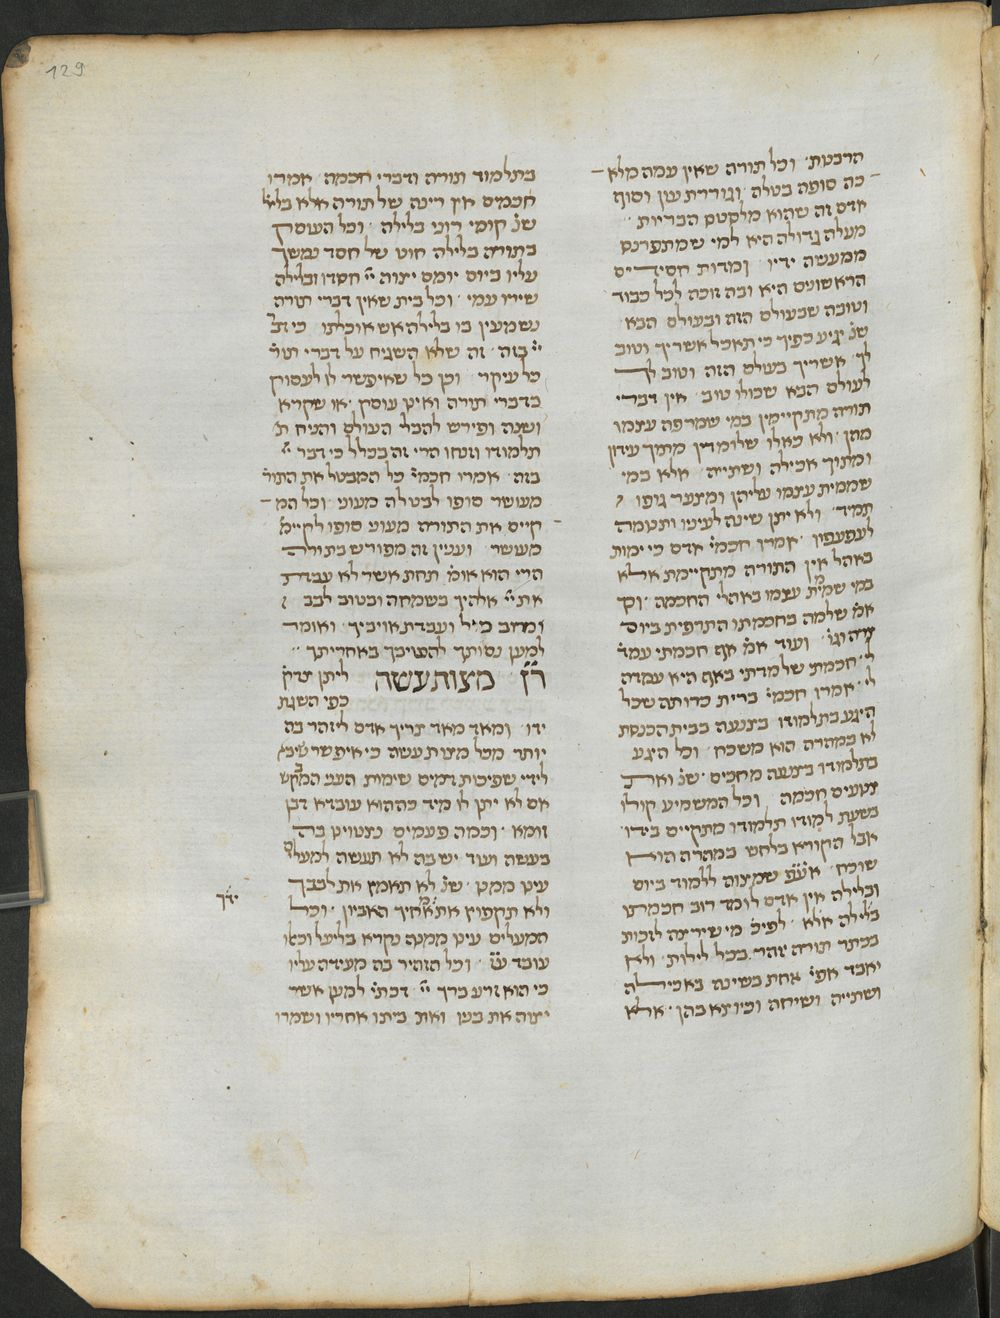 129
הרבנות׳ וכל תורה שאין עמה מלא
כה סופה בטלה וגוררת עון וסוף
אדם זה שהוא מלסטם הבריות
מעלה גדולה היא למי שמתפרנס
ממעשה ידיו ומדות חסידיים
הראשונים היא ובה זוכה לכל כבוד
וטובה שבעולם הזה ובעולם הבא
שנ׳ יגיע כפיך כי תאכל אשריך וטוב
לך אשריך בעולם הזה וטוב לך
לעולם הבא שכולו טוב אין דברי
תורה מתקיימין במי שמרפה עצמו
מהן ולא כאלו שלומדין מתוך עידון
ומתוך אכילה ושתייה אלא במי
שממית עצמו עליהן ומצער גופו
תמיד ולא יתן שינה לעיניו ותנומה
לעפעפיו אמרו חכמי׳ אדם כי ימות
באהל אין התורה מתקיימת אלא
במי שממית עצמו באהלי החכמה וכך
אמ׳ שלמה בחכמתו התרפית ביום
צרה וגו׳ ועוד אמ׳ אף חכמתי עמדה
לי חכמתי שלמדתי באף היא עמדה
לי אמרו חכמי׳ ברית כרותה שכל
היגע בתלמודו בצנעה בבית הכנסת
לא במהרה הוא משכח וכל היגע
בתלמודו בצנעה מחכים שנ׳ ואת
צנועים חכמה וכל המשמיע קולו
בשעת למודו תלמודו מתקיים בידו
אבל הקורא בלחש במהרה הוא
שוכח אע״פ שמצוה ללמוד ביום
ובלילה אין אדם לומד רוב חכמתו
בלילה אלא לפיכ׳ מי שירצה לזכות
בכתר תורה יזהר בכל לילות ולא
יאבד אפי׳ אחת בשינה באכילה
ושתייה ושיחה וכיוצא בהן אלא
בתלמוד תורה ודברי חכמה אמרו
חכמים אין רינה של תורה אלא בליל׳
שנ׳ קומי רוני בלילה וכל העוסק
בתורה בלילה חוט של חסד נמשך
עליו ביום יומם יצוה יי׳ חסדו ובלילה
שירו עמי וכל בית שאין דברי תורה
נשמעין בו בלילה אש אוכלתו כי דב׳
יי׳ בזה זה שלא השגיח על דברי תור׳
כל עיקר וכן כל שאיפשר לו לעסוק
בדברי תורה ואינו עוסק או שקרא
ושנה ופירש להבלי העולם והניח ת׳
תלמודו וזנחו הרי זה בכלל כי דבר יי׳
בזה אמרו חכמי׳ כל המבטל את התור׳
מעושר סופו לבטלה מעוני וכל המ
קיים את התורה מעוני סופו לקיימ׳
מעושר ועניין זה מפורש בתורה
הרי הוא אומ׳ תחת אשר לא עבדת
את יי׳ אלהיך בשמחה ובטוב לבב
ומרוב כל ועבדת אויביך ואומר
למען נסותך להטיבך באחריתך
מצות עשה ליתן צדק׳
כפי השגת
ידו ומאד מאד צריך אדם ליזהר בה
יותר מכל מצות עשה כי איפשר שיבא
לידי שפיכות דמים שימות העני המבקש
אם לא יתן לו מיד כההוא עובדא דבן
זומא וכמה פעמים נצטוינו בה
בעשה ועוד יש בה לא תעשה למעל׳
עינו ממנו שנ׳ לא תאמץ את לבבך
ידך
ולא תקפוץ את מאחיך האביון וכל
המעלים עינו ממנה נקרא בליעל וכאלו
עובד ע״ז וכל הזהיר בה מעידה עליו
כי הוא זרע ברך יי׳ דכתי׳ למען אשר
יצוה את בניו ואת ביתו אחריו ושמרו